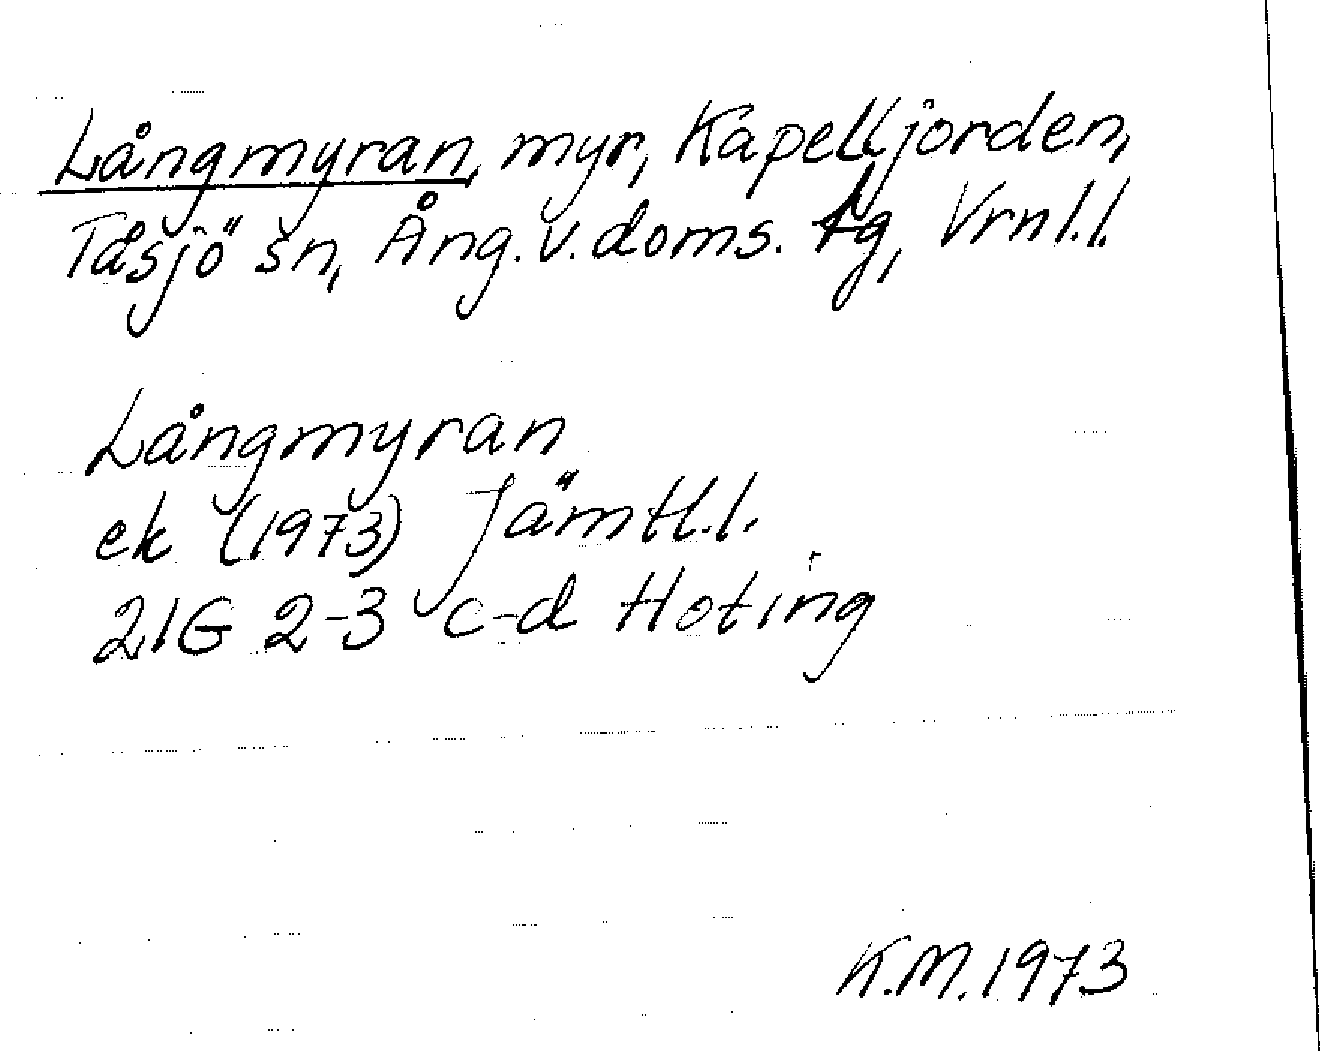 Långmyran, myr, Kapelljorden,
Tåsjö sn, Ång.v.doms. tg, Vrnl.l.
Långmyran
ek (1973) Jämtl.l.
21G 2-3 c-d Hoting
K.M.1973